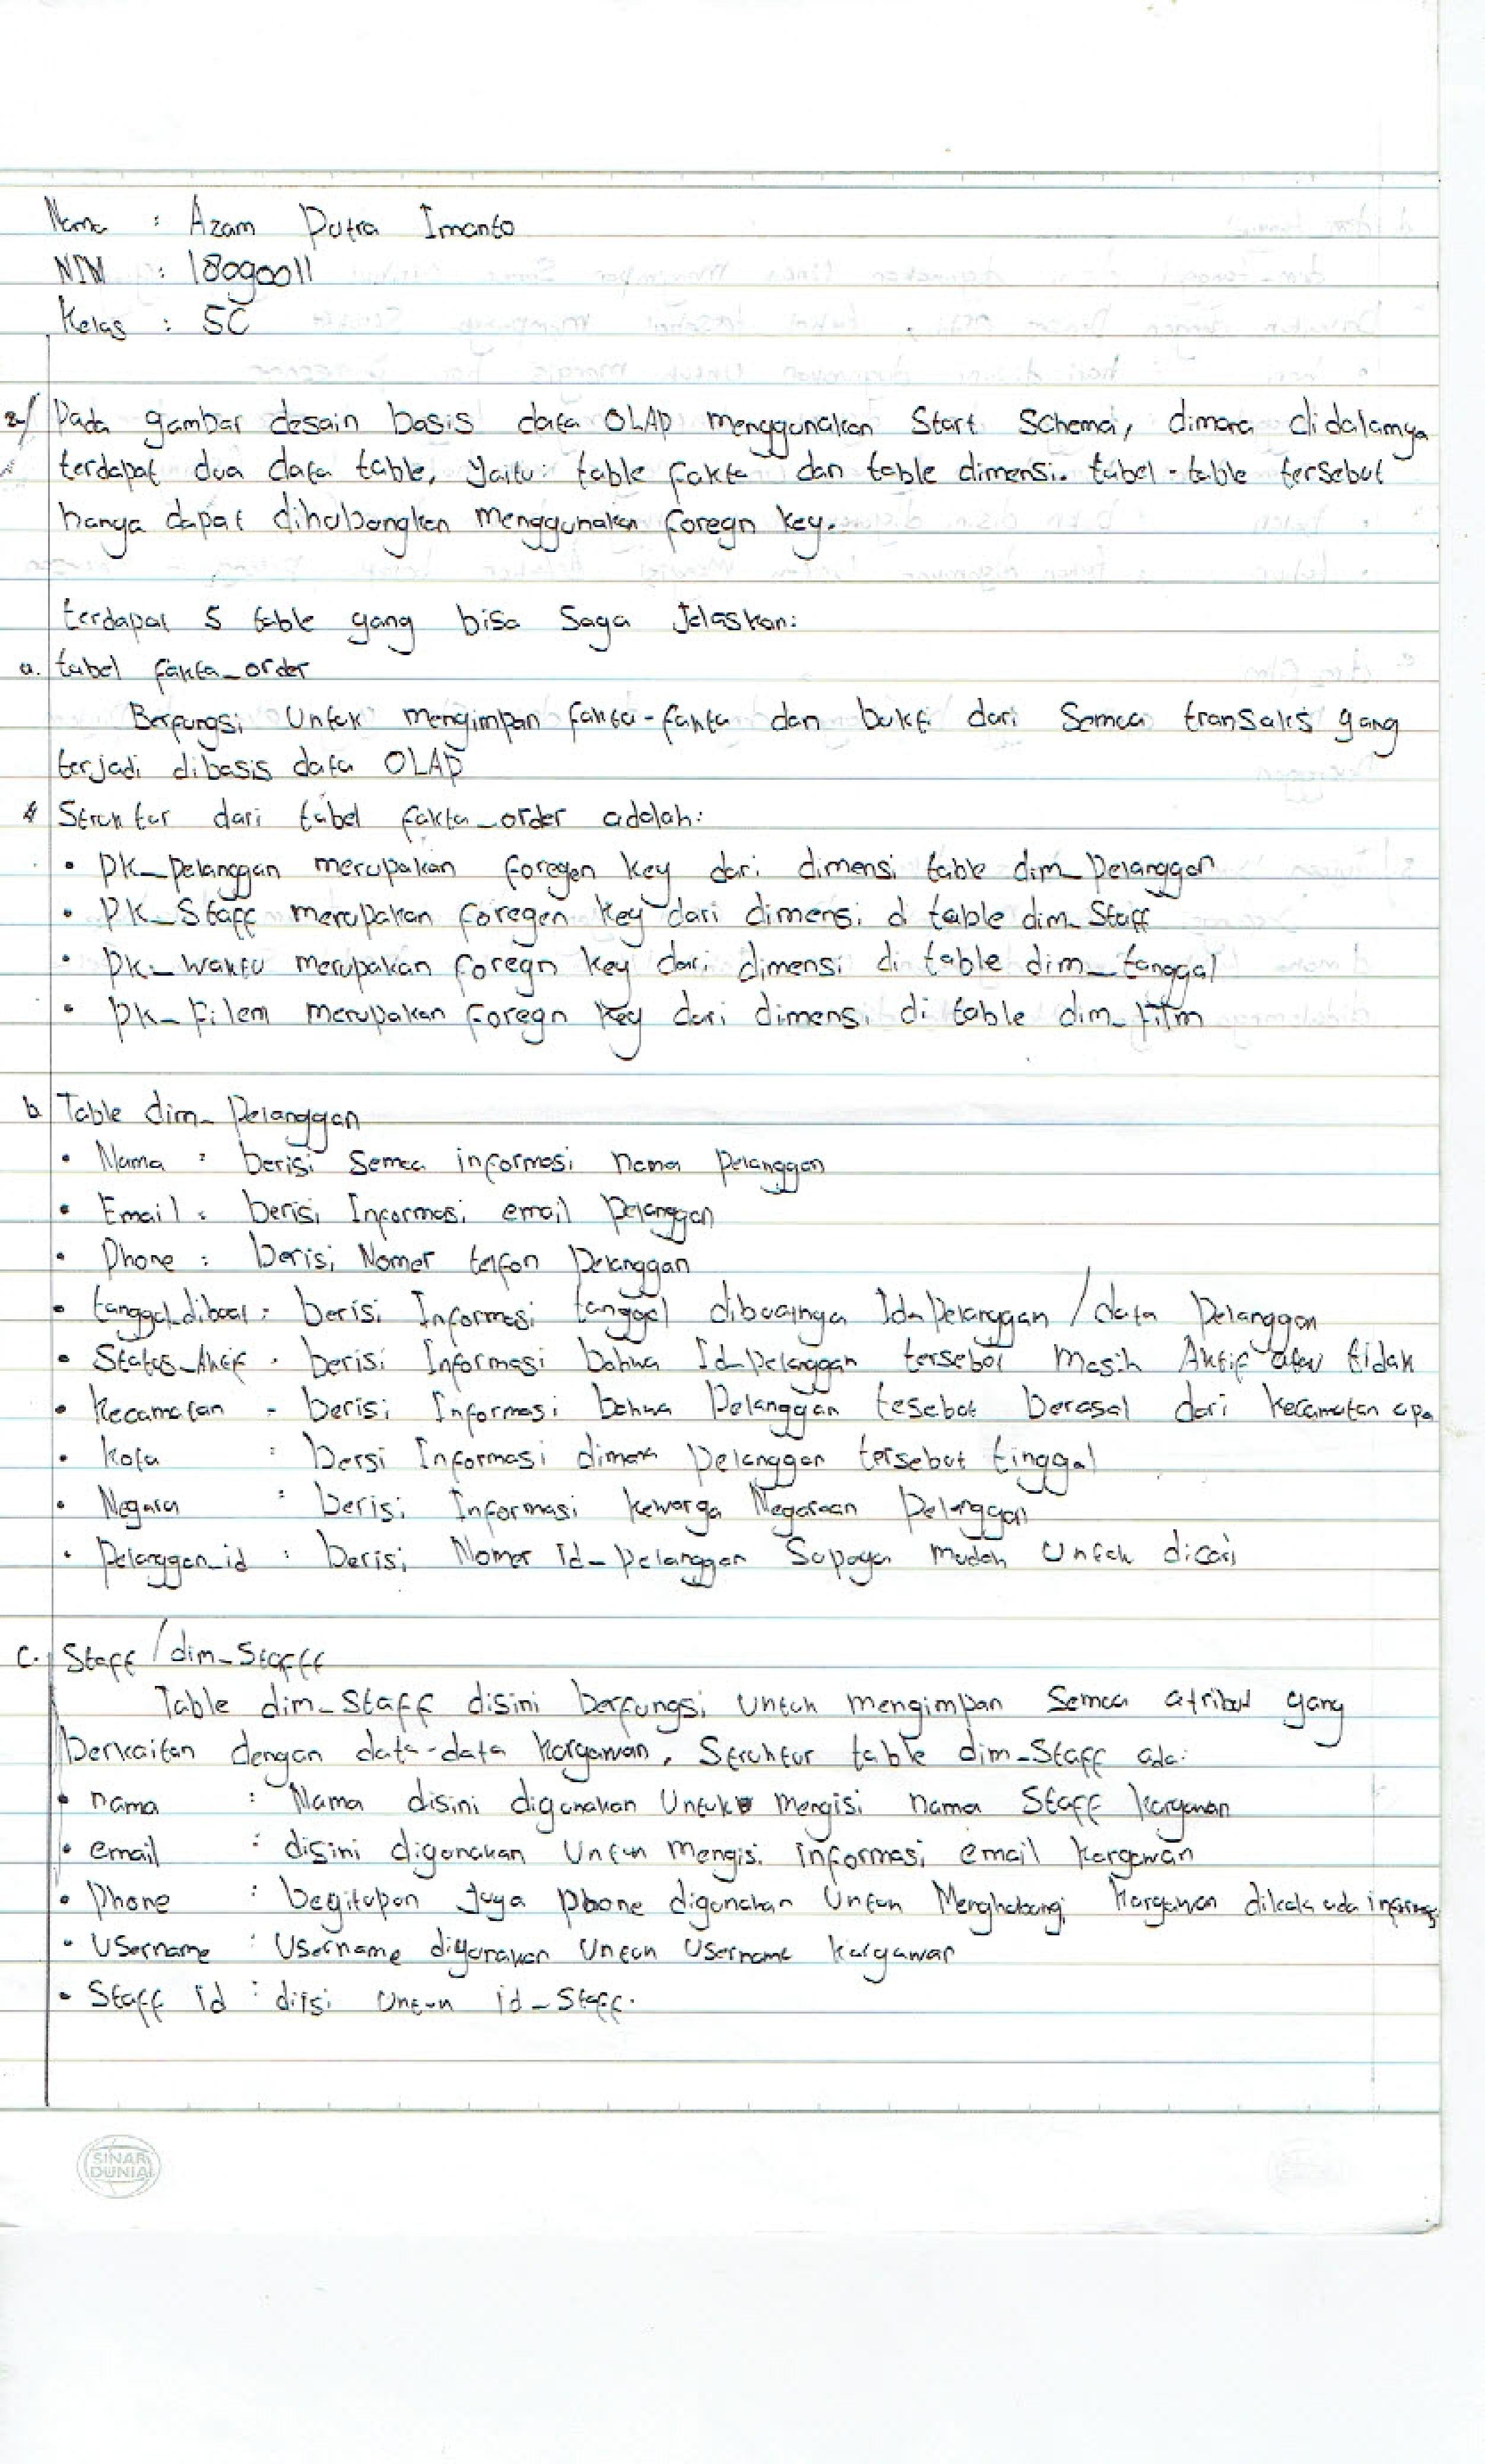 Nama : Azam Putra Imanto
NIM : 18090011
Kelas : 5C
2/ Pada gambar desain basis data OLAP menggunakan Start Schema, dimana didalamya
terdapat dua data table, yaitu: table fakta dan table dimensi. tabel-table tersebut
hanya dapat dihubungkan menggunakan foregn key.
terdapat 5 table yang bisa saya Jelaskan:
a. tabel fakta_order
Berfungsi Untuk mengimpan fakta-fakta dan bukti dari Semua transaksi yang
terjadi dibasis data OLAP
# Struktur dari tabel fakta_order adalah:
• PK_pelanggan merupakan foregen key dari dimensi table dim_pelanggan
• PK_Staff merupakan foregen key dari dimensi di table dim_Staff
• PK_waktu merupakan foregn key dari dimensi di table dim_tanggal
• PK_Filem merupakan foregn key dari dimensi di table dim_film
b. Table dim_Pelanggan
• Nama : berisi semua informasi nama pelanggan
• Email : berisi Informasi email pelanggan
• Phone : berisi Nomer telfon pelanggan
• tanggal_dibuat : berisi Informasi tanggal dibuatnya Id_pelanggan / data pelanggan
• Status_Aktif : berisi Informasi bahwa Id_pelanggan tersebut masih Aktif atau tidak
• Kecamatan : berisi Informasi bahwa Pelanggan tesebut berasal dari kecamatan apa
• Kota : bersi Informasi dimana pelanggan tersebut tinggal
• Negara : berisi Informasi kewarga Negaraan pelanggan
• Pelanggan_id : berisi Nomer id_pelanggan Supaya mudah untuk dicari
c. Staff / dim_Stafff
Table dim_Staff disini berfungsi untuk mengimpan Semua atribut yang
berkaitan dengan data-data karyawan, Struktur table dim_Staff ada:
• nama : Nama disini digunakan Untuk mengisi nama Staff karyawan
• email : disini digunakan Untuk mengisi informasi email karyawan
• Phone : begitupun Juga phone digunakan Untuk Menghubungi karyawan dikala ada
• Username : Username digunakan Untuk Username karyawan
• Staff id : diisi Untuk id_Staff.
SINAR
DUNIA